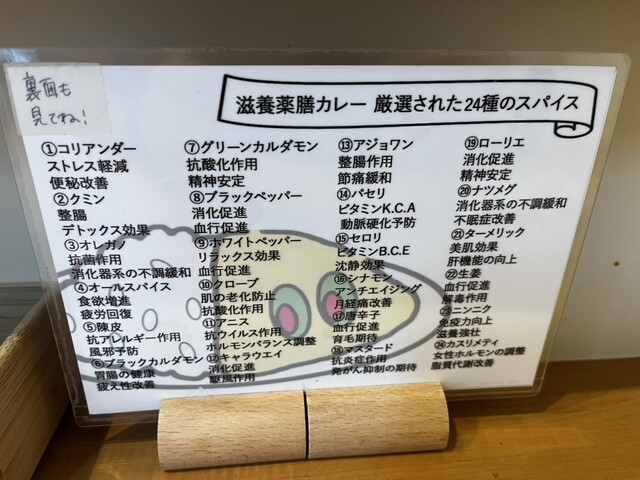 裏面も
見てね!
滋養薬膳カレー 厳選された24種のスパイス
①コリアンダー
ストレス軽減
便秘改善
②クミン
整腸
デトックス効果
③オレガノ
抗菌作用
消化器系の不調緩和
④オールスパイス
食欲増進
疲労回復
⑤陳皮
抗アレルギー作用
風邪予防
⑥ブラックカルダモン
胃腸の健康
疲え性改善
⑦グリーンカルダモン
抗酸化作用
精神安定
⑧ブラックペッパー
消化促進
血行促進
⑨ホワイトペッパー
リラックス効果
血行促進
⑩クローブ
肌の老化防止
抗酸化作用
⑪アニス
抗ウイルス作用
ホルモンバランス調整
⑫キャラウエイ
消化促進
駆風作用
⑬アジョワン
整腸作用
節痛緩和
⑭パセリ
ビタミンK.C.A
動脈硬化予防
⑮セロリ
ビタミンB.C.E
沈静効果
⑯シナモン
アンチエイジング
月経痛改善
⑰唐辛子
血行促進
育毛期待
⑱マスタード
抗炎症作用
発がん抑制の期待
⑲ローリエ
消化促進
精神安定
⑳ナツメグ
消化器系の不調緩和
不眠症改善
㉑ターメリック
美肌効果
肝機能の向上
㉒生姜
血行促進
解毒作用
㉓ニンニク
免疫力向上
滋養強壮
㉔カスリメティ
女性ホルモンの調整
脂質代謝改善